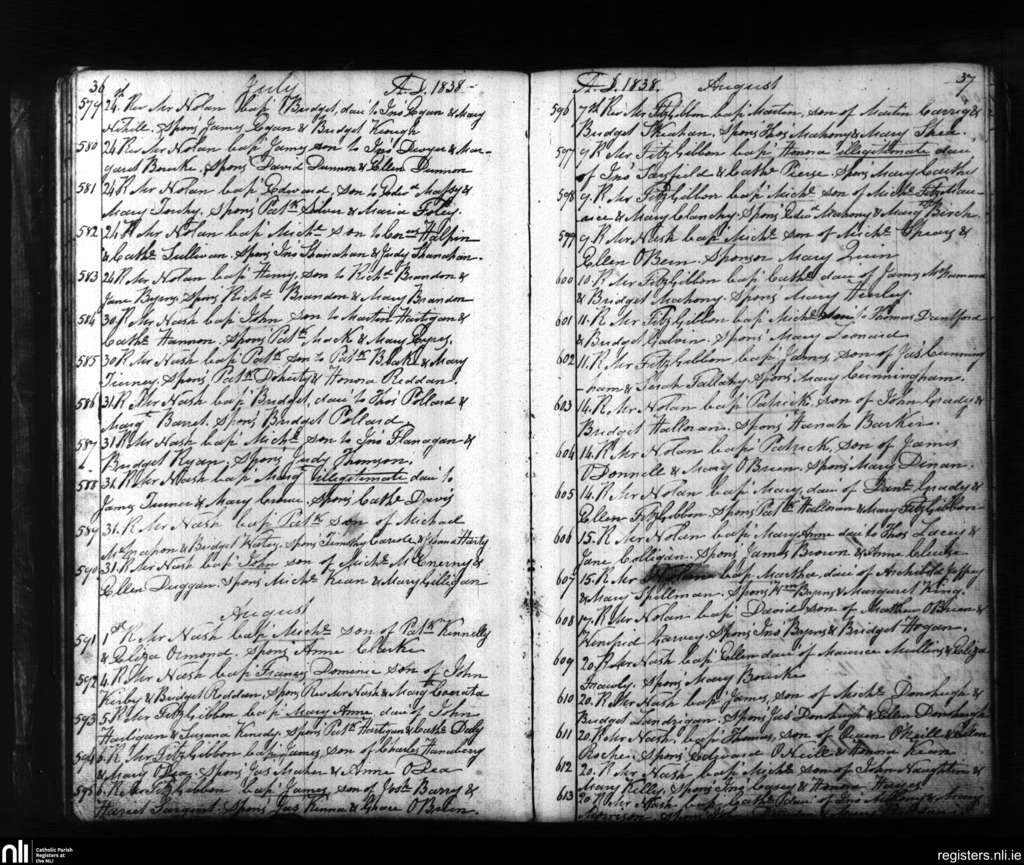 36 July A.D. 1838
579 24th Rev Mr Nolan bap' Bridget, dau' to Jno Egan & Mary
Nihill. Spons James Egan & Bridget Keough
580 24 Rev Mr Nolan bap' James son to Jno Dwyer & Mar-
garet Bourke, Spons David Dunnon & Ellen Dunnon
581 24 R Mr Nolan bap' Edward, son to Massy &
Mary Spons Patk & Maria Foley.
582 24 R Mr Nolan bap' Michl Son to Halpin
& Cathe Sullivan. Spons Jno Shanahan & Judy Shanahan.
583 26 R Mr Nolan bap' Henry, son to Richd Brandon &
Jane Byers, Spons Richd Brandon & Mary Brandon
584 30 R Mr Nash bap' John son to Martin Hartigan &
Cathe Hannon. Spons Patk Mack & Mary
585 30 R Mr Nash bap' Patk son to Patk Blake & Mary
Tierney, Spons Patk Doherty & Honora Reddan.
586 31 R Mr Nash bap' Bridget, dau' to Thos Pollard &
Margt Barret. Spons Bridget Pollard
587 31 R Mr Nash bap' Michl son to Jno Flanagan &
Bridget Ryan, Spons Judy Thomson.
588 31. R Mr Nash bap' Margt illegitimate dau' to
James Turner & Mary Spons Cathe Davis
589 31. R Mr Nash bap' Patk son of Michael
McMahon & Bridget Spons Timothy & Harty
590 31. R Mr Nash bap' John son of Michl McEnerny &
Ellen Duggan. Spons Michl Kean & Mary Gilligan
August
591 1st R Mr Nash bap' Michl son of Patk Kennelly
& Eliza Ormond, Spons Anne Clerke
592 4. R Mr Nash bap' Francis Dominic son of John
Kirby & Bridget Reddan, Spons Rev Mr Nash & Mary
593 5. R Mr FitzGibbon bap' Mary Anne dau' of John
Hartigan & Susana Kenedy. Spons Patk Hartigan & Cathe Daly
594 6. R Mr FitzGibbon bap' James, son of Charles
& Mary O'Dea, Spons Jas Maher & Anne O'Dea
595 6. R Mr FitzGibbon bap' James, son of Barry &
Hariet Sargint. Spons Jas Kenna & O'Brien.
A.D. 1838. August 37
596 7th Rev Mr FitzGibbon bap' Martin, son of Martin Carrig &
Bridget Sheahan, Spons Thos Mahony & Mary Shea.
597 9. R Mr FitzGibbon bap' Honora illegitimate dau'
of Jno Sarsfield & Cathe Pierse. Spons Mary Carthy
598 9. R Mr FitzGibbon bap' Michl son of Michl FitzMau-
rice & Mary Clanchy. Spons Edwd Mahony & Mary Birch
599 9. R Mr Nash bap' Michl son of Michl Spears &
Ellen OBern Sponsor Mary Quin
600 10. R Mr FitzGibbon bap' Cathe dau' of James McNamara
& Bridget Mahony. Spons Mary Henley.
601 11. R Mr FitzGibbon bap' Michl son to Thomas Danford
& Bridget Galvin. Spons Mary Leonard
602 11. R Mr FitzGibbon bap' James, son of Jas Cunning
-ham & Sarah Fallahy. Spons Mary Cunningham.
603 14. R Mr Nolan bap' Patrick, son of John Grady &
Bridget Halloran. Spons Hanah Barker.
604 14. R Mr Nolan bap' Patrick, son of James
O'Donnell & Mary O'Brien. Spons Mary Dinan.
605 14. R Mr Nolan bap' Mary, dau' of Danl Grady &
Ellen FitzGibbon. Spons Patk Halloran & Mary FitzGibbon
606 15. R Mr Nolan bap' Mary Anne dau' to Thos Lacey &
Jane Colligan. Spons James Brown & Anne Clucke
607 15. R Mr Nolan bap' Martha, dau' of Archibald Jeffrey
& Mary Spellman. Spons Wm Byrns & Margaret King.
608 17. R Mr Nolan bap' David son of Mathew O'Brien &
Winifred Garvey. Spons Jno Byers & Bridget Hogan.
609 20. R Mr Nash bap' Ellen dau' of Maurice Mullins & Eliza
Frawly. Spons Mary Bourke
610 20. R Mr Nash bap' James, son of Michl Donohugh &
Bridget Londrigan. Spons Jas Donohugh & Ellen Donohugh
611 20. R Mr Nash, bap' Thomas, son of Owen O'Neill & Ellen
Roche, Spons Edward O'Neill & Honora Kean
612 20. R Mr Nash bap' Michl son of John Naughton &
Mary Kelly. Spons Jno Casey & Honora Hayes
613 20 R Mr Nash bap' Cathe dau' of Jno Mahony & Mary
Morrison
nli Catholic Parish
Registers at
the NLI
registers.nli.ie